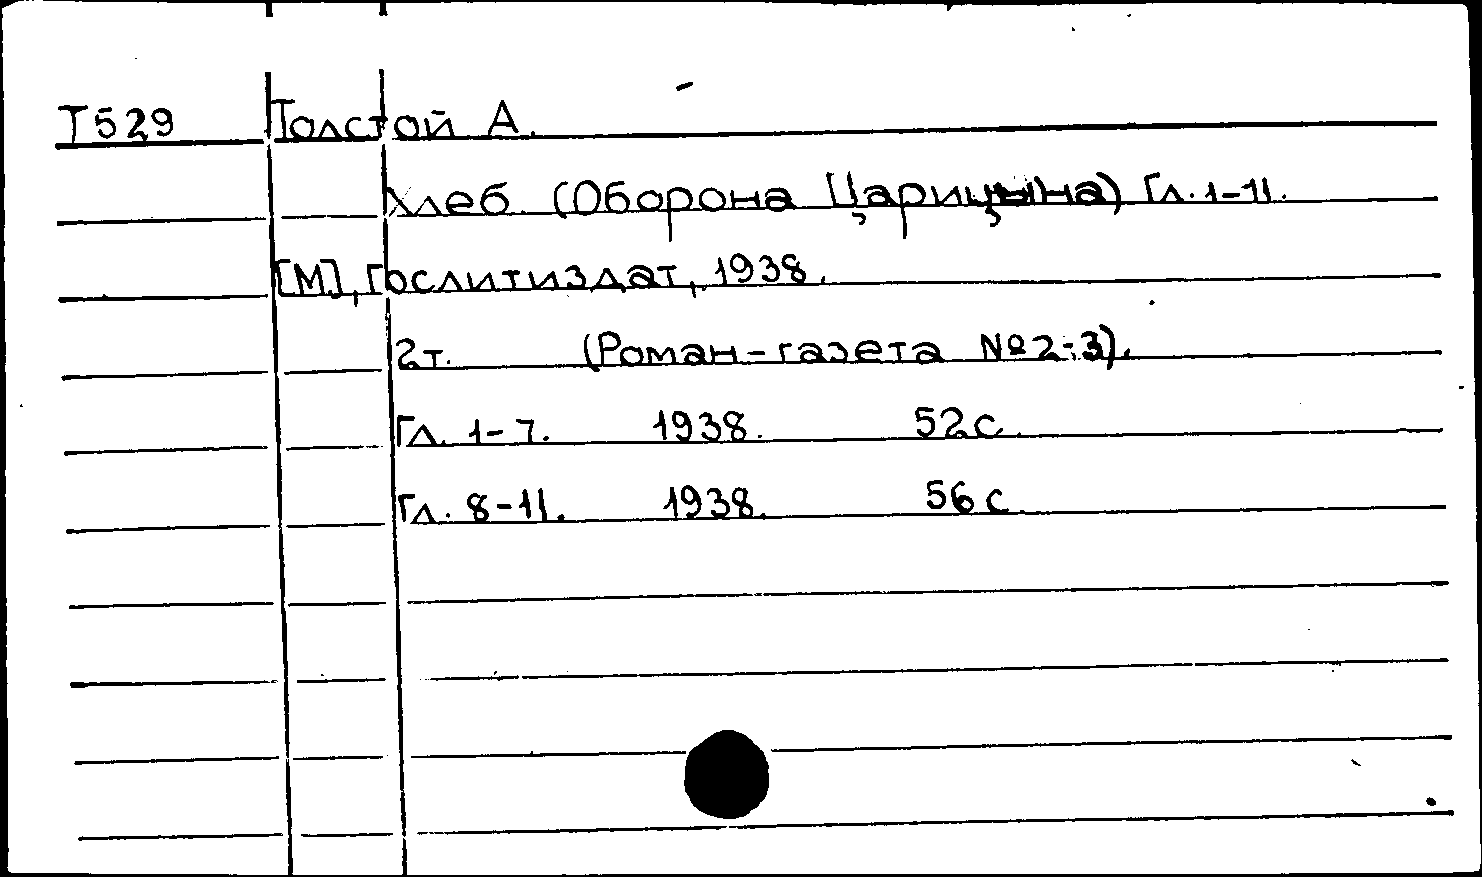 Т529 Толстой А.
Хлеб (Оборона Царицына) Гл. 1-11.
[М], Гослитиздат, 1938.
2т. (Роман-газета №2-3).
Гл. 1-7. 1938. 52с.
Гл. 8-11. 1938. 56с